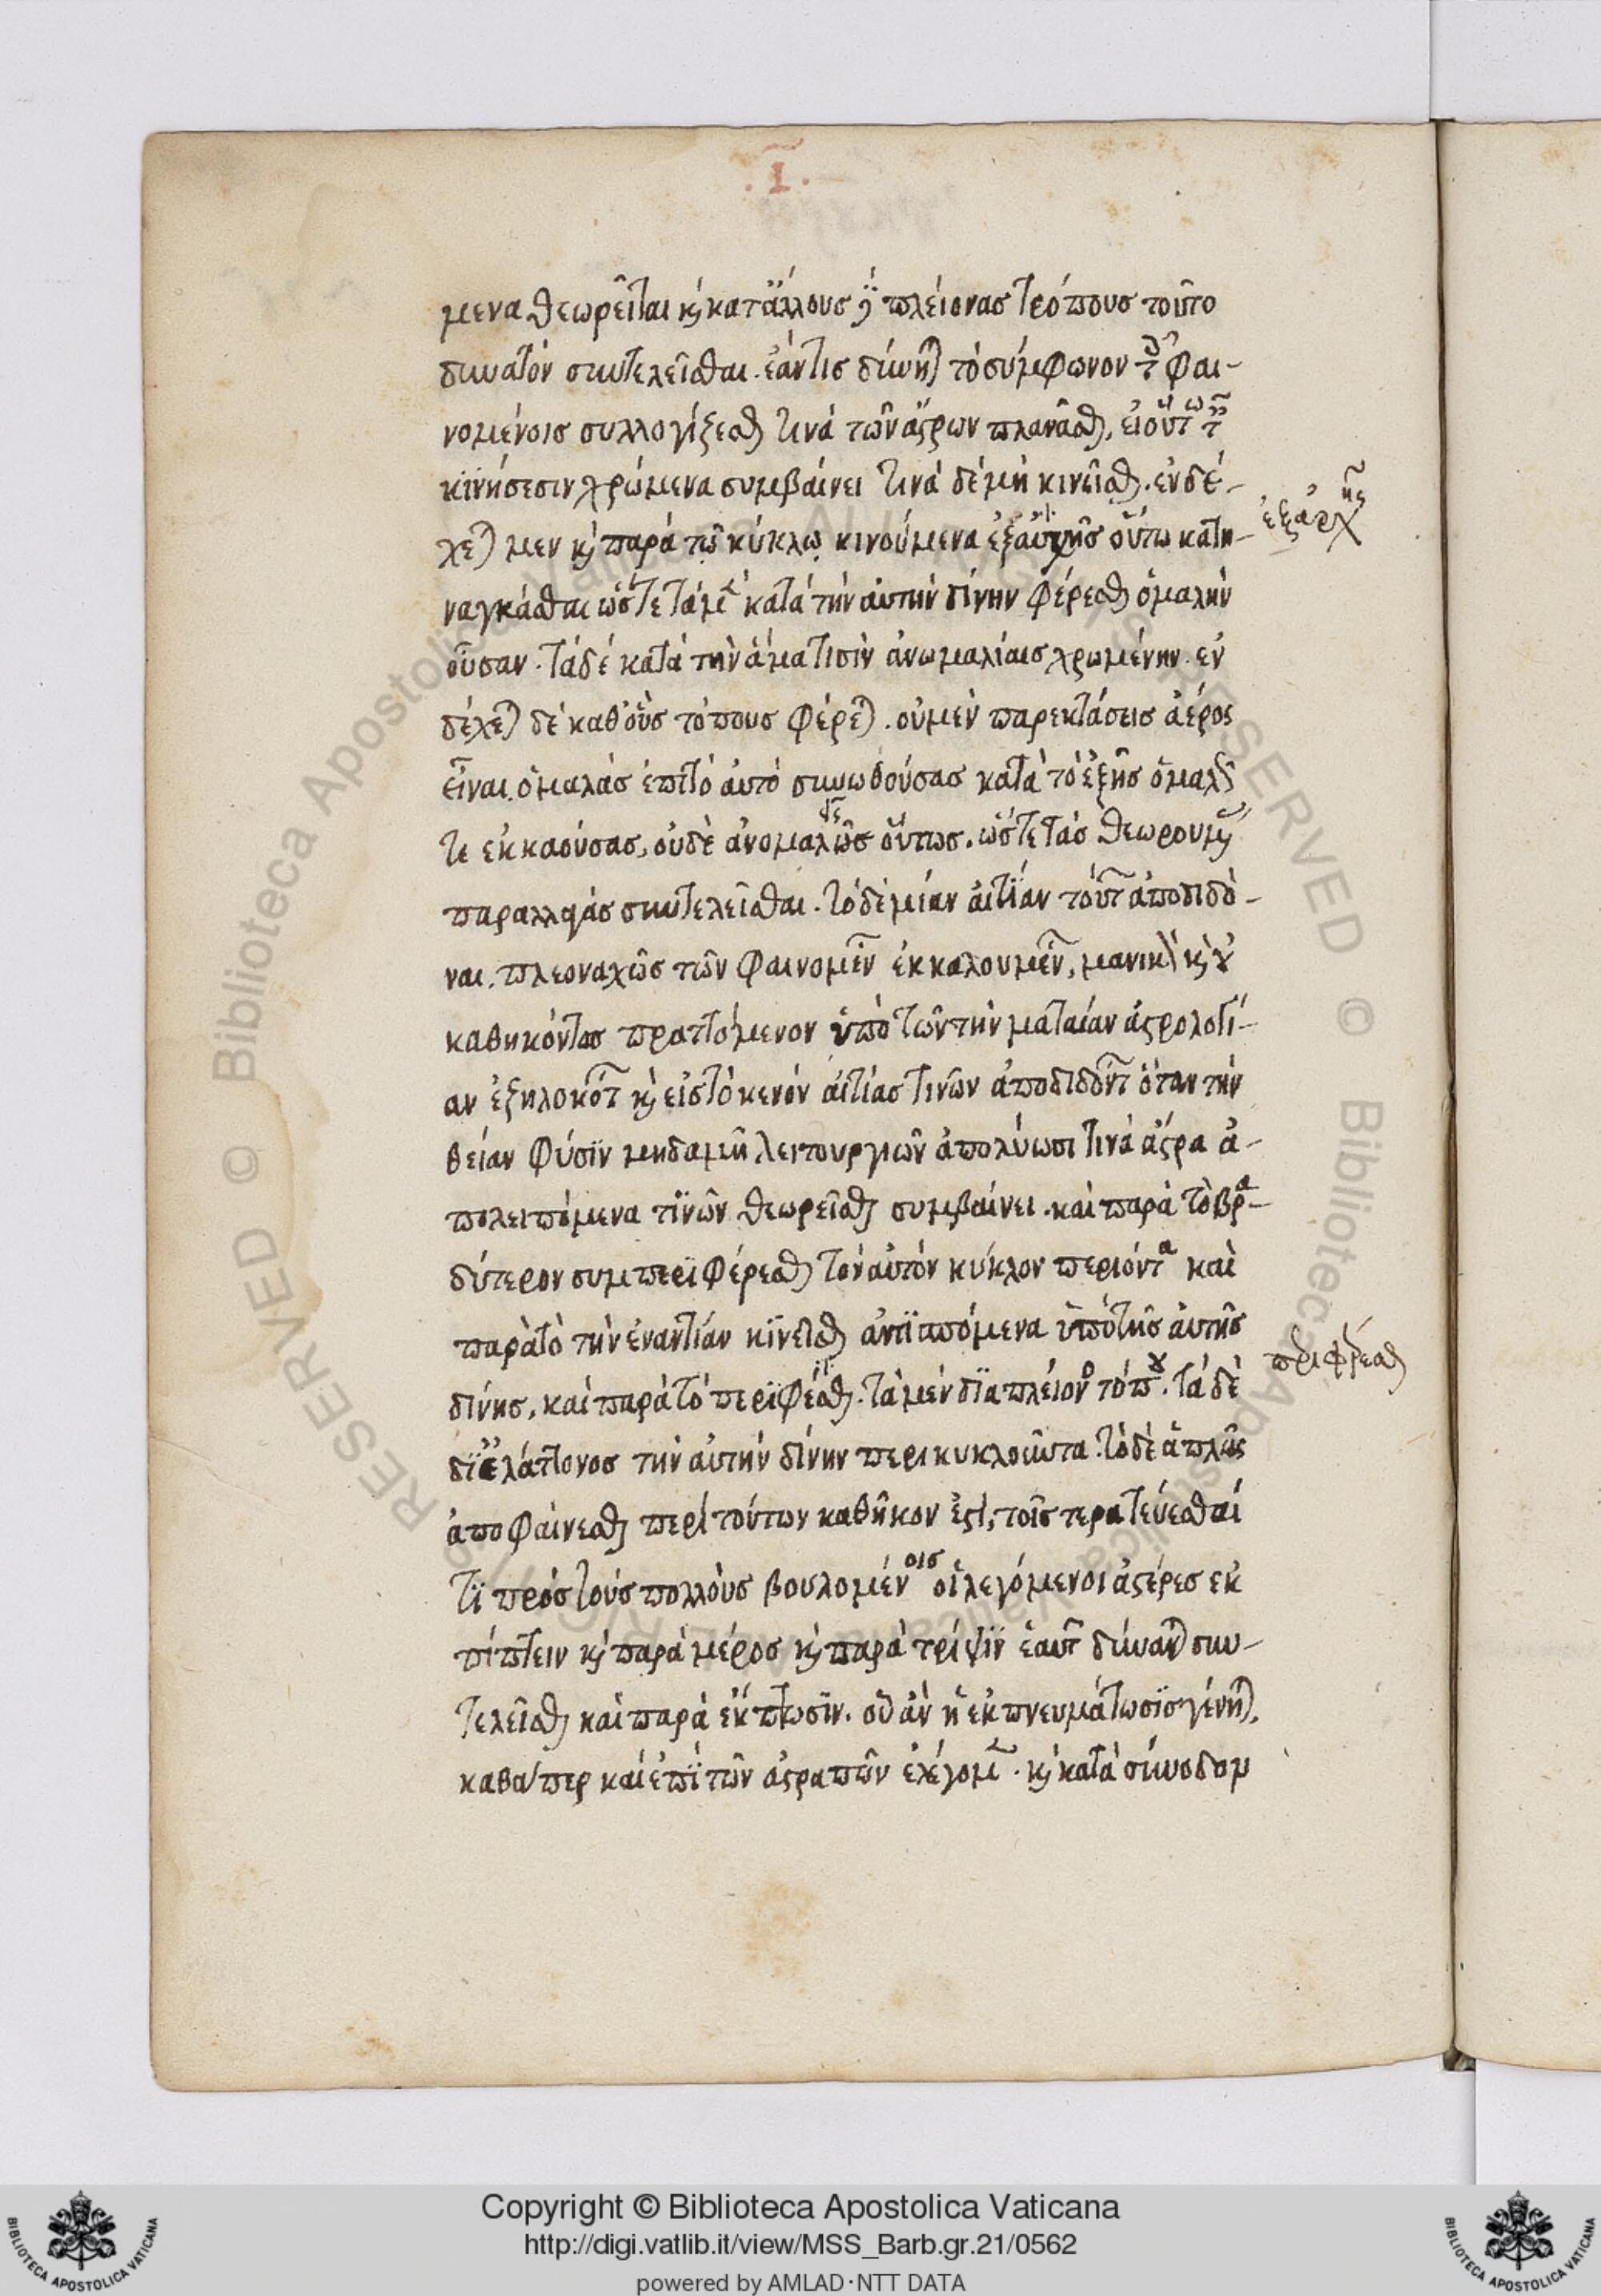 .ι.
μενα θεωρεῖται κ κατ' ἄλλους κ πλείονας τρόπους τοῦτο
δυνατόν συντελεῖσθαι. ἐάν τις δύνηται τὸ σύμφωνον τοῖς φαι-
νομένοις συλλογίζεσθαι τινά τῶν ἄστρων πλανᾶσθαι, εἰ οὕτω τ
κϊνήσεσιν χρώμενα συμβαίνει τινά δέ μή κινεῖσθαι. ἐνδέ-
χεται μεν κ παρά τῶ κύκλω κινούμενα ἐξαυτῆς οὕτω κατη-
ἐξαρχῆς
ναγκάσθαι ὥστε τά μὲν κατά τήν αὐτήν δίνην φέρεσθαι ὁμαλήν
οὖσαν. τά δέ κατά τήν ἅμα τισίν ἀνωμαλίαις χρωμένην. ἐν
δέχεται δέ καθ' οὓς τόπους φέρεται. οὐ μὲν παρεκτάσεις ἀέρος
εἶναι ὁμαλάς ἐπί τό αὐτό συνωθούσας κατά τό ἑξῆς ὁμαλῶς
τε ἐκκαούσας, οὐδὲ ἀνομαλῶς οὕτως. ὥστε τάς θεωρουμένας
παραλλαγάς συντελεῖσθαι. τὸ δὲ μίαν αἰτίαν τούτων ἀποδιδό-
ναι. πλεοναχῶς τῶν φαινομένων ἐκκαλουμένων, μανικόν κ οὐ
καθηκόντως πραττόμενον ὑπό τῶν τήν ματαίαν ἀστρολογί-
αν ἐζηλοκότων κ εἰς τὸ κενόν αἰτίας τινῶν ἀποδιδόντων ὅταν τήν
θείαν φύσϊν μηδαμῆ λειτουργιῶν ἀπολύωσι τινά ἄστρα ἀ-
πολειπόμενα τϊνῶν θεωρεῖσθαι συμβαίνει. καί παρά τὸ βρα-
δύτερον συμπερϊφέρεσθαι τόν αὐτόν κύκλον περιόντα καὶ
παρὰ τὸ τήν ἐναντίαν κϊνεῖσθαι ἀντϊσπόμενα ὑπό τῆς αὐτῆς
δίνης, καί παρά τό περϊφέσθαι. τὰ μέν δϊα πλείονος τόπου. τά δὲ
περιφέρεσθαι
δϊ' ἐλάττονος τήν αὐτήν δίνην περικυκλοῦντα. τὸ δὲ ἁπλῶς
ἀποφαίνεσθαι περί τούτων καθῆκον ἐστί, τοῖς τερατεύεσθαί
τϊ πρός τούς πολλούς βουλομένοις οἱ λεγόμενοι ἀστέρες ἐκ
πίπτειν κ παρά μέρος κ παρά τρίψϊν ἑαυτῶν δύνανται συν-
τελεῖσθαι καί παρά ἔκπτωσϊν. οὗ ἄν ἡ ἐκπνευμάτωσϊς γένηται.
καθάπερ καί ἐπϊ τῶν ἀστραπῶν ἐλέγομεν. κ κατά σύνοδον
Copyright © Biblioteca Apostolica Vaticana
http://digi.vatlib.it/view/MSS_Barb.gr.21/0562
powered by AMLAD·NTT DATA